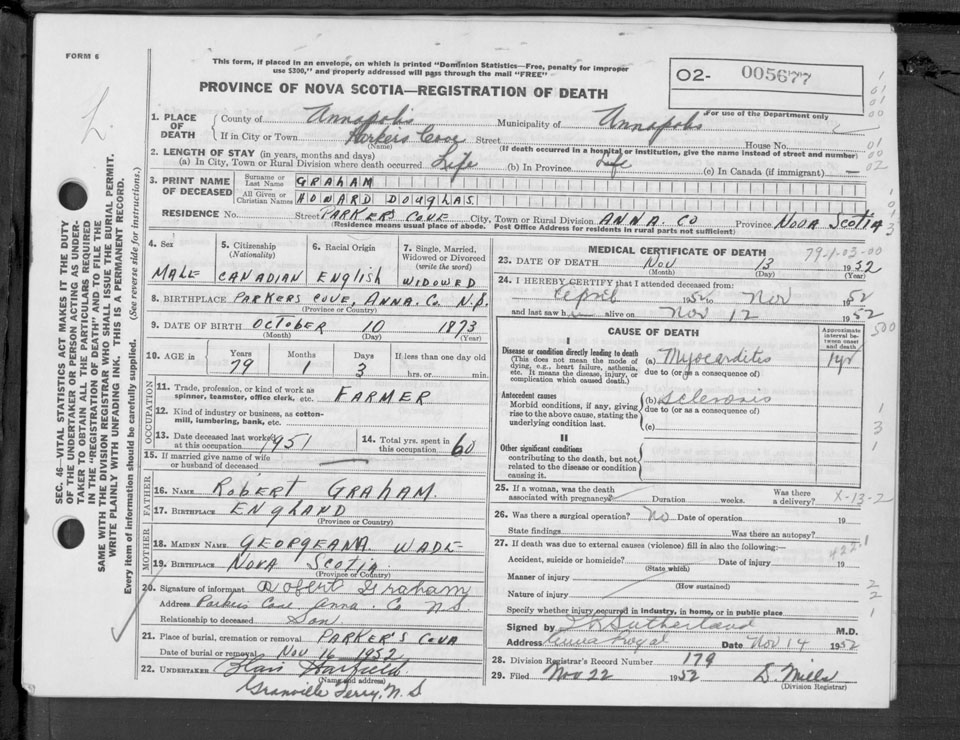 FORM 6
This form, if placed in an envelope, on which is printed "Dominion Statistics—Free, penalty for improper
use $300," and properly addressed will pass through the mail "FREE"
PROVINCE OF NOVA SCOTIA—REGISTRATION OF DEATH
O2- 005677
For use of the Department only
1. PLACE OF DEATH
County of Annapolis Municipality of Annapolis
If in City or Town Parkers Cove Street House No.
(Name) (If death occurred in a hospital or institution, give the name instead of street and number)
2. LENGTH OF STAY (in years, months and days)
(a) In City, Town or Rural Division where death occurred Life (b) In Province Life (c) In Canada (if immigrant) —
3. PRINT NAME OF DECEASED
Surname or Last Name GRAHAM
All Given or Christian Names HOWARD DOUGLAS
RESIDENCE No. Street PARKERS COVE City, Town or Rural Division ANNA. CO Province NOVA SCOTIA
(Residence means usual place of abode. Post Office Address for residents in rural parts not sufficient)
4. Sex MALE
5. Citizenship (Nationality) CANADIAN
6. Racial Origin English
7. Single, Married, Widowed or Divorced (write the word) WIDOWED
8. BIRTHPLACE PARKERS COVE, ANNA. Co. N.S.
(Province or Country)
9. DATE OF BIRTH OCTOBER 10 1873
(Month) (Day) (Year)
10. AGE in Years 79 Months 1 Days 3 If less than one day old hrs. or min.
OCCUPATION
11. Trade, profession, or kind of work as spinner, teamster, office clerk, etc. FARMER
12. Kind of industry or business, as cotton-mill, lumbering, bank, etc.
13. Date deceased last worked at this occupation 1951
14. Total yrs. spent in this occupation 60
15. If married give name of wife or husband of deceased —
FATHER
16. NAME ROBERT GRAHAM.
17. BIRTHPLACE ENGLAND
(Province or Country)
MOTHER
18. MAIDEN NAME GEORGEANA WADE
19. BIRTHPLACE NOVA SCOTIA
(Province or Country)
20. Signature of informant Robert Graham
Address Parkers Cove, Anna. Co N.S.
Relationship to deceased Son
21. Place of burial, cremation or removal PARKER'S COVE
Date of burial or removal Nov 16 1952
22. UNDERTAKER
(Name and address)
Granville Ferry, N.S
MEDICAL CERTIFICATE OF DEATH
79-1-03-00
23. DATE OF DEATH Nov 13 1952
(Month) (Day) (Year)
24. I HEREBY CERTIFY that I attended deceased from:
April 1952 to Nov 1952
and last saw h alive on Nov 12 1952
CAUSE OF DEATH
Approximate interval between onset and death
I
Disease or condition directly leading to death (a) Myocarditis 1 yr
(This does not mean the mode of dying, e.g., heart failure, asthenia, etc. It means the disease, injury, or complication which caused death.)
due to (or as a consequence of)
Antecedent causes (b) Sclerosis
Morbid conditions, if any, giving rise to the above cause, stating the underlying condition last.
due to (or as a consequence of)
(c)
II
Other significant conditions
contributing to the death, but not related to the disease or condition causing it.
25. If a woman, was the death associated with pregnancy? Duration weeks. Was there a delivery?
X-13-2
26. Was there a surgical operation? No Date of operation 19
State findings Was there an autopsy?
27. If death was due to external causes (violence) fill in also the following:—
422-1
Accident, suicide or homicide? Date of injury 19
(State which)
Manner of injury
(How sustained)
Nature of injury
Specify whether injury occurred in industry, in home, or in public place
Signed by Sutherland M.D.
Address Anna Royal Date Nov 14 1952
28. Division Registrar's Record Number 179
29. Filed Nov 22 1952 D. Mills
(Division Registrar)
SEC. 46—VITAL STATISTICS ACT MAKES IT THE DUTY
OF THE UNDERTAKER OR PERSON ACTING AS UNDER-
TAKER TO OBTAIN ALL THE PARTICULARS REQUIRED
IN THE "REGISTRATION OF DEATH" AND TO FILE THE
SAME WITH THE DIVISION REGISTRAR WHO SHALL ISSUE THE BURIAL PERMIT.
WRITE PLAINLY WITH UNFADING INK. THIS IS A PERMANENT RECORD.
Every item of information should be carefully supplied. (See reverse side for instructions.)